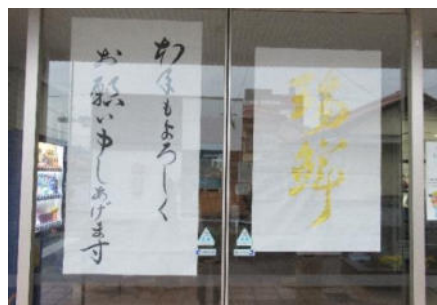 本年もよろしく
お願い申しあげます